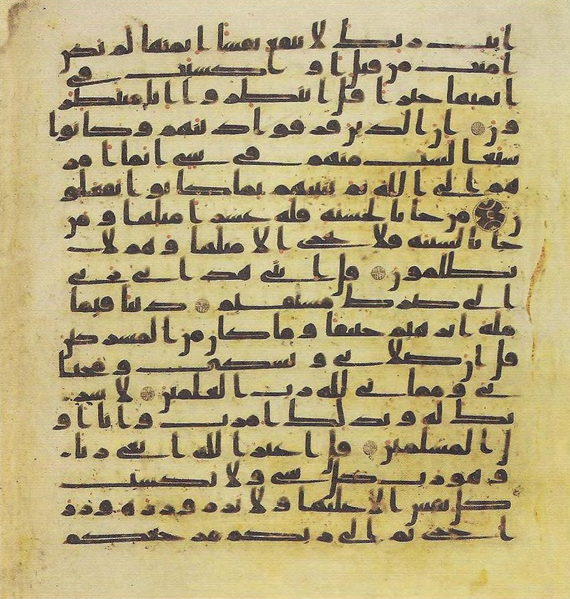 ايت ربك لا ينفع نفسا ايمنها لم تكن
امنت من قبل او كسبت في
ايمنها خيرا قل انتظروا انا منتظر
ون ان الذين فرقوا دينهم وكانوا
شيعا لست منهم في شي انما امر
هم الى الله ثم ينبئهم بما كانوا يفعلو
ن من جا بالحسنة فله عشر امثلها و من
جا بالسيئة فلا يجزى الا مثلها و هم لا
يظلمون قل انني هديني ربي
الى صرط مستقيم دينا قيما
ملة ابرهيم حنيفا و ما كان من المشركين
قل ان صلاتي و نسكي و محيا
ي و مماتي لله رب العلمين لا شر
يك له و بذلك امرت و انا او
ل المسلمين قل اغير الله ابغي ربا
و هو رب كل شي و لا تكسب
كل نفس الا عليها و لا تزر وزرة وزر
اخرى ثم الى ربكم مرجعكم